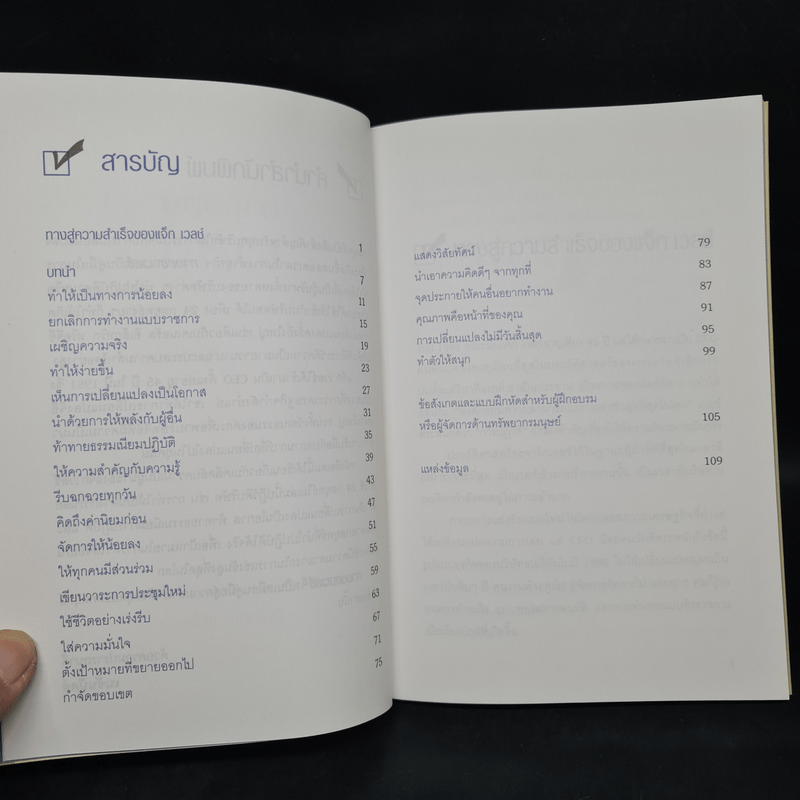 สารบัญ
ทางสู่ความสำเร็จของแจ็ก เวลช์ 1
บทนำ 7
ทำให้เป็นทางการน้อยลง 11
ยกเลิกการทำงานแบบราชการ 15
เผชิญความจริง 19
ทำให้ง่ายขึ้น 23
เห็นการเปลี่ยนแปลงเป็นโอกาส 27
นำด้วยการให้พลังกับผู้อื่น 31
ท้าทายธรรมเนียมปฏิบัติ 35
ให้ความสำคัญกับความรู้ 39
รีบฉกฉวยทุกวัน 43
คิดถึงค่านิยมก่อน 47
จัดการให้น้อยลง 51
ให้ทุกคนมีส่วนร่วม 55
เขียนวาระการประชุมใหม่ 59
ใช้ชีวิตอย่างเร่งรีบ 63
ใส่ความมั่นใจ 67
ตั้งเป้าหมายที่ขยายออกไป 71
กำจัดขอบเขต 75
แสดงวิสัยทัศน์ 79
นำเอาความคิดดีๆ จากทุกที่ 83
จุดประกายให้คนอื่นอยากทำงาน 87
คุณภาพคือหน้าที่ของคุณ 91
การเปลี่ยนแปลงไม่มีวันสิ้นสุด 95
ทำตัวให้สนุก 99
ข้อสังเกตและแบบฝึกหัดสำหรับผู้ฝึกอบรม
หรือผู้จัดการด้านทรัพยากรมนุษย์ 105
แหล่งข้อมูล 109